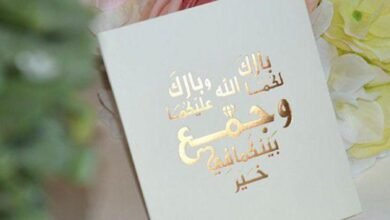 بارَكَ
لكُمَا الله وبارَكَ
عليكُمَا
وجَمَّع
بَينَكُمَا في
خَير